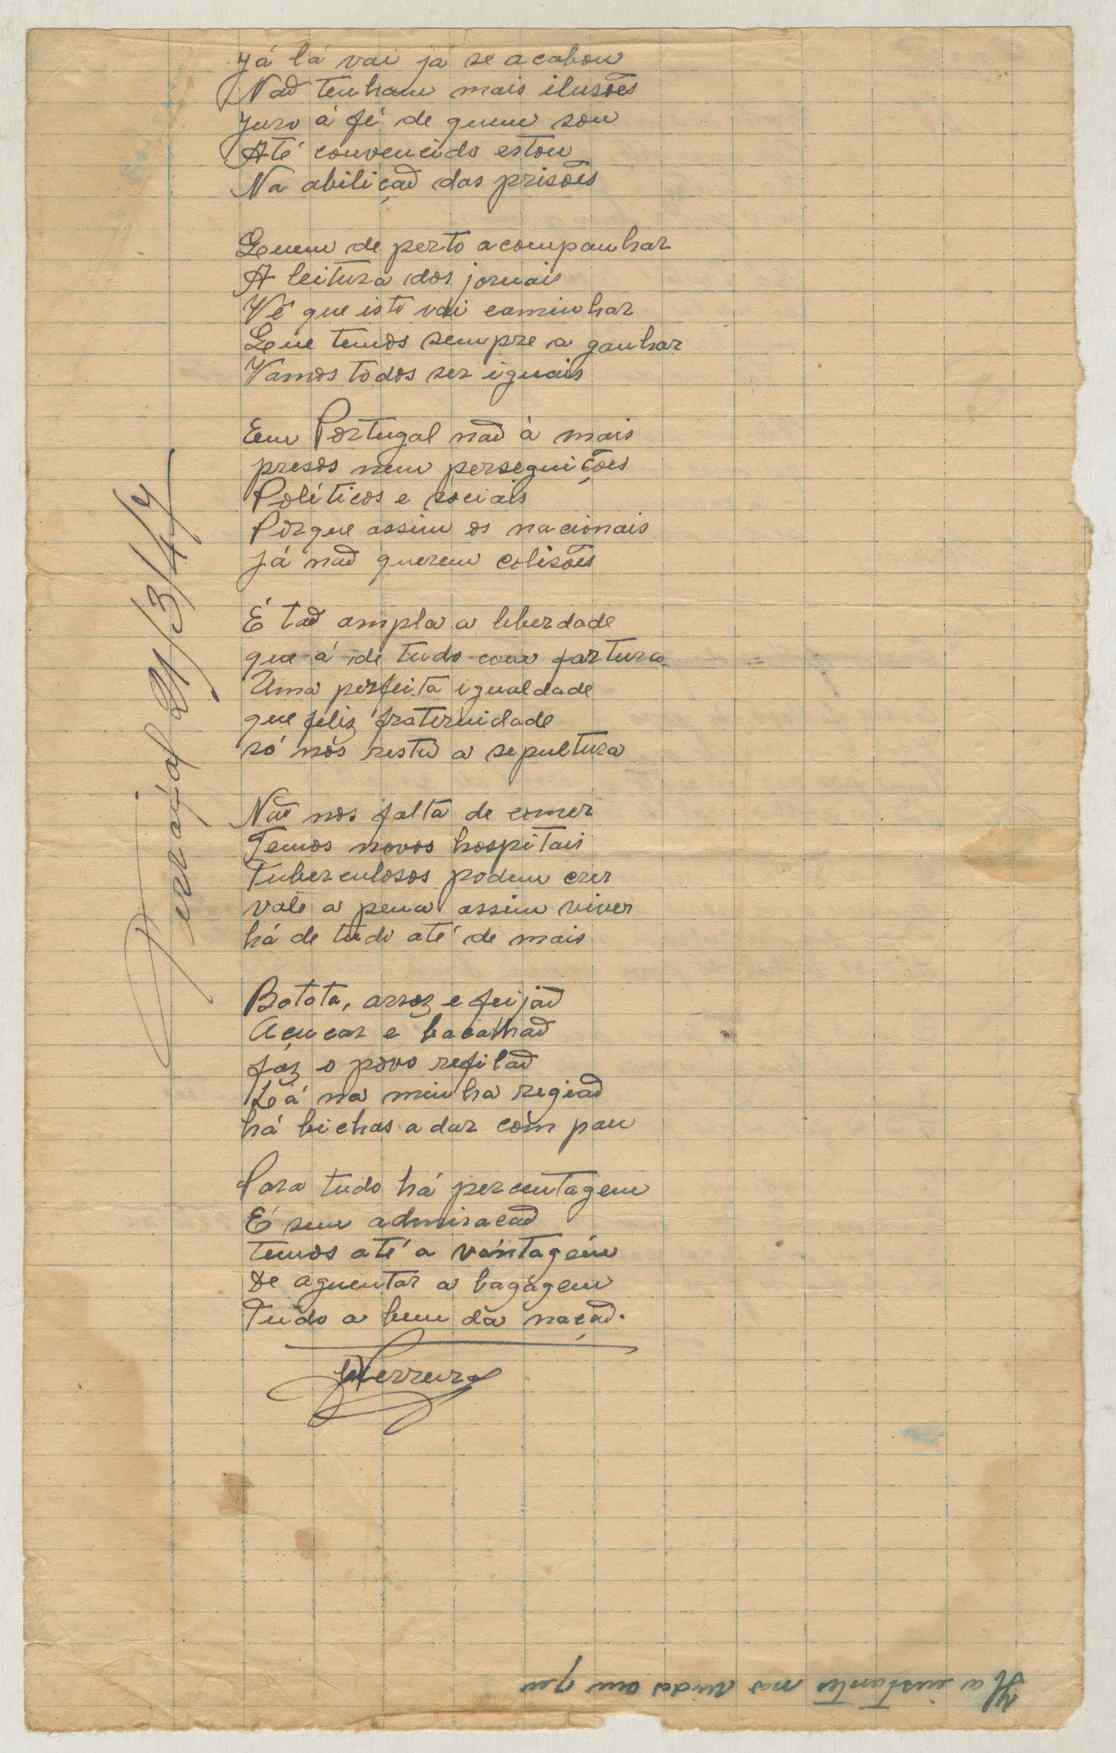 Já lá vai já se acabou
Naõ tenham mais ilusões
Juro á fé de quem sou
Até convencido estou
Na abiliçaõ das prisões
Quem de perto acompanhar
A leitura dos jornais
Vê que isto vai caminhar
Que temos sempre a ganhar
Vamos todos ser iguais
Em Portugal naõ à mais
presos nem perseguições
Políticos e sociais
Porque assim os nacionais
já naõ querem colisões
É taõ ampla a liberdade
que á de tudo com fartura
Uma perfeita igualdade
que feliz fraternidade
só nós resta a sepultura
Não nos falta de comer
Temos novos hospitais
Tuberculosos podem crer
vale a pena assim viver
há de tudo até de mais
Batata, arroz e feijaõ
Açucar e bacalhaõ
fáz o povo refilaõ
Lá na minha regiaõ
há bichas a dar còm pau
Para tudo há percentagem
E sem admiracaõ
temos até a vántagém
De aguentar a bagágem
Tudo a bem da naçaõ.
Ferreira
Tarrafal 21/3/47
Ha instantes nas vidas em que